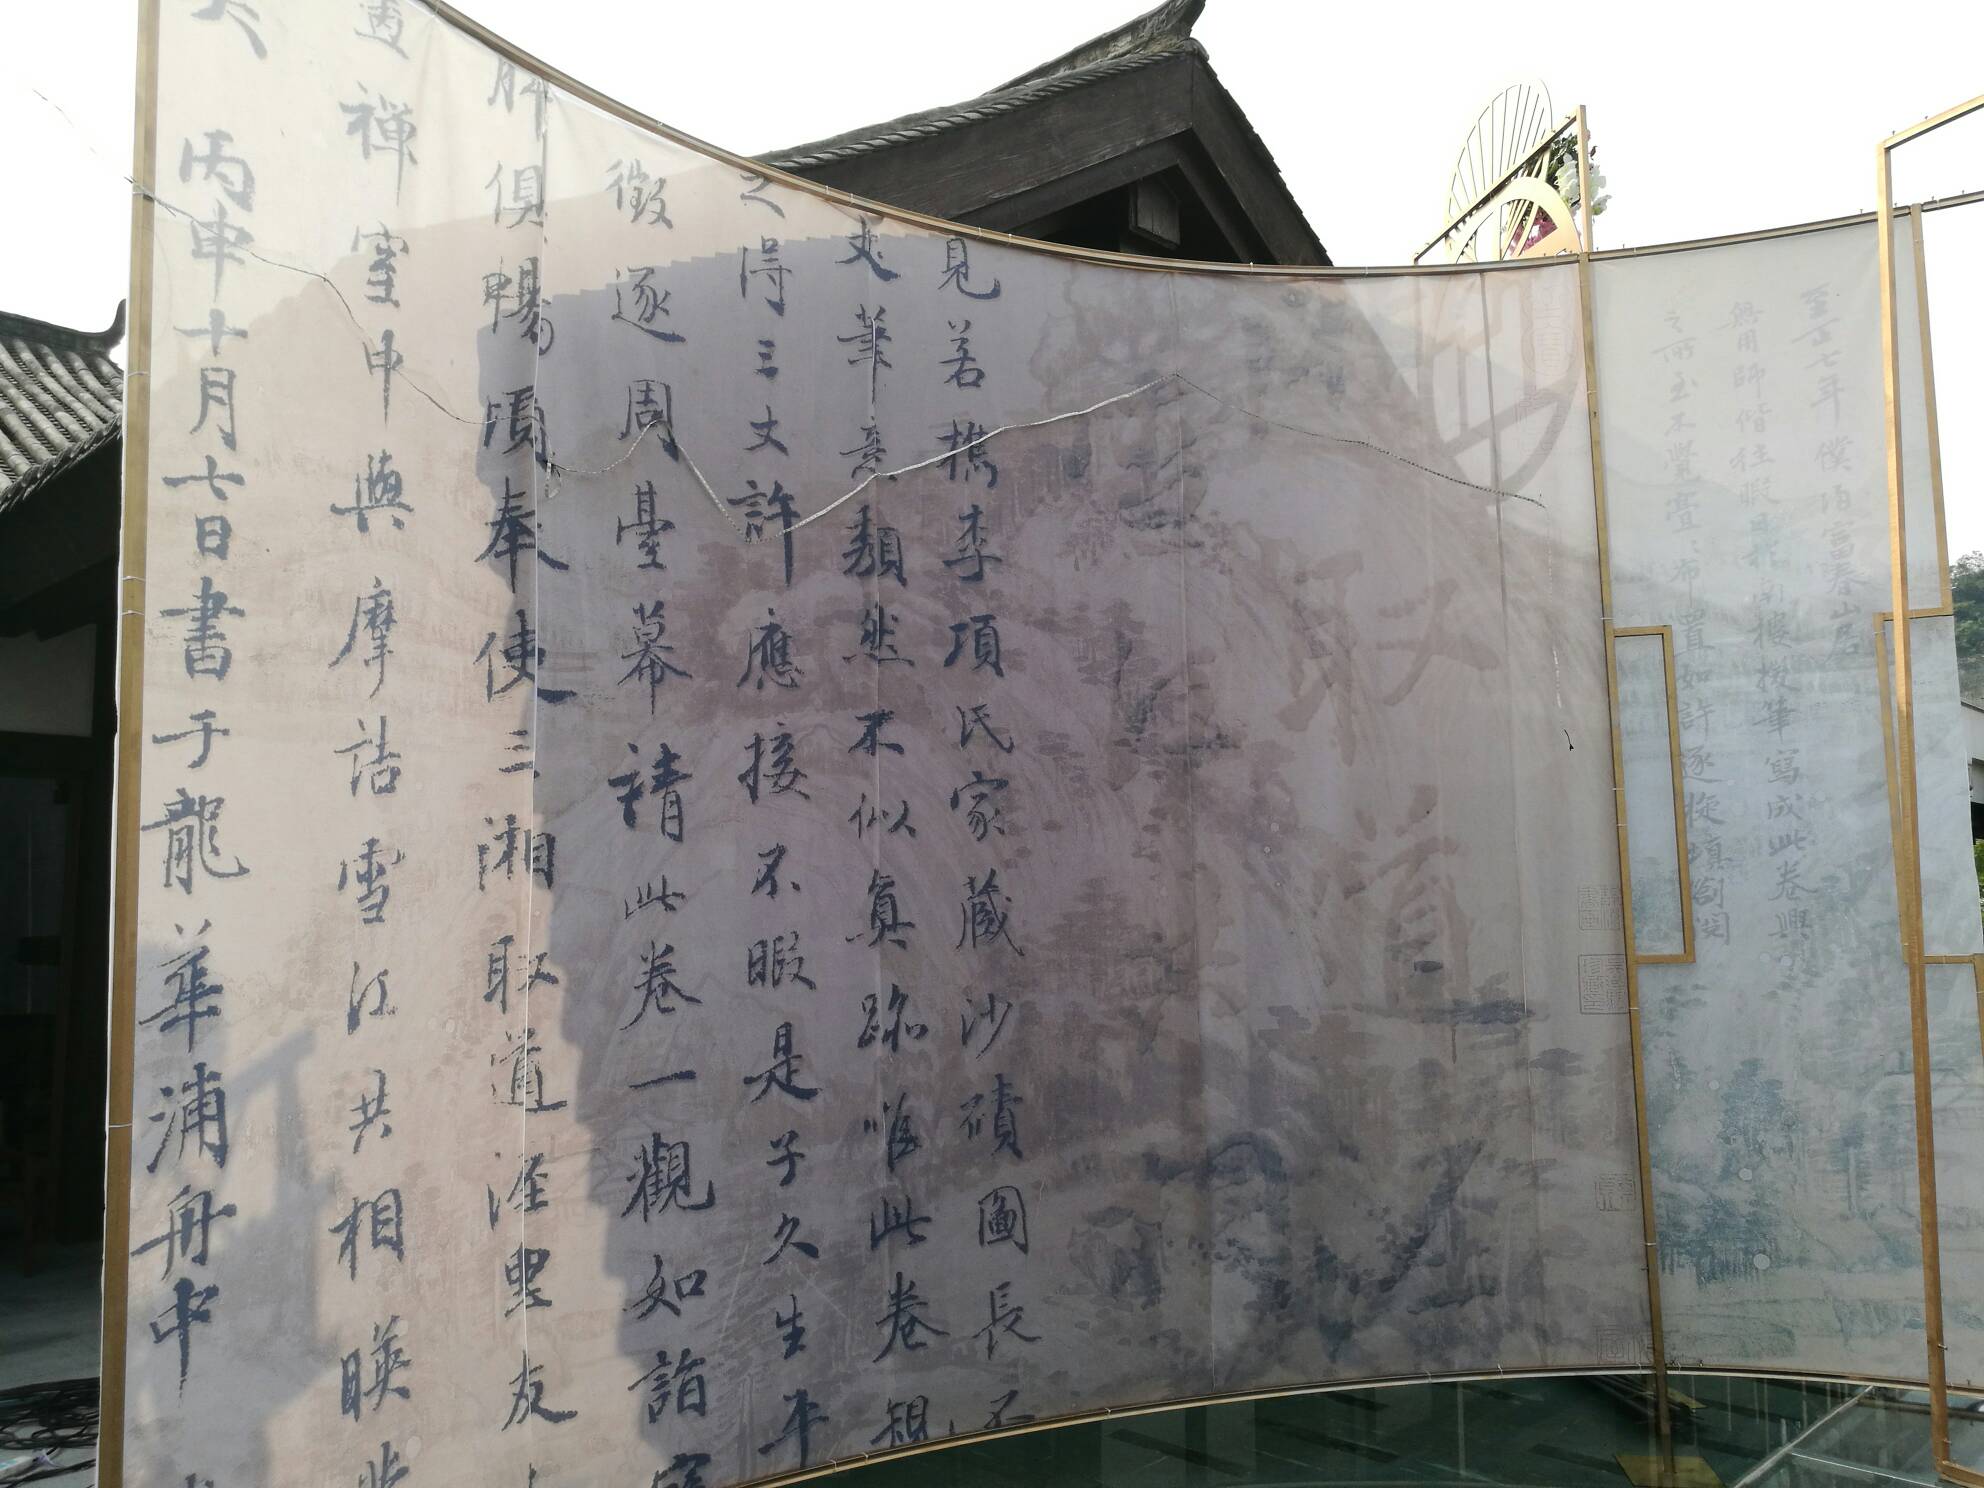 至正七年僕歸富春山居
無用師偕往暇日於南樓援筆寫成此卷興
之所至不覺亹亹布置如許逐旋填劄閱
見若檇李項氏家藏沙磧圖長不
筆意頹然不似真跡唯此卷規
之得三丈許應接不暇是子久生平
徵逐周臺幕請此卷一觀如詣
解俱暢頃奉使三湘取道涇里友
禪室中與摩詰雪江共相暎
矣 丙申十月七日書于龍華浦舟中